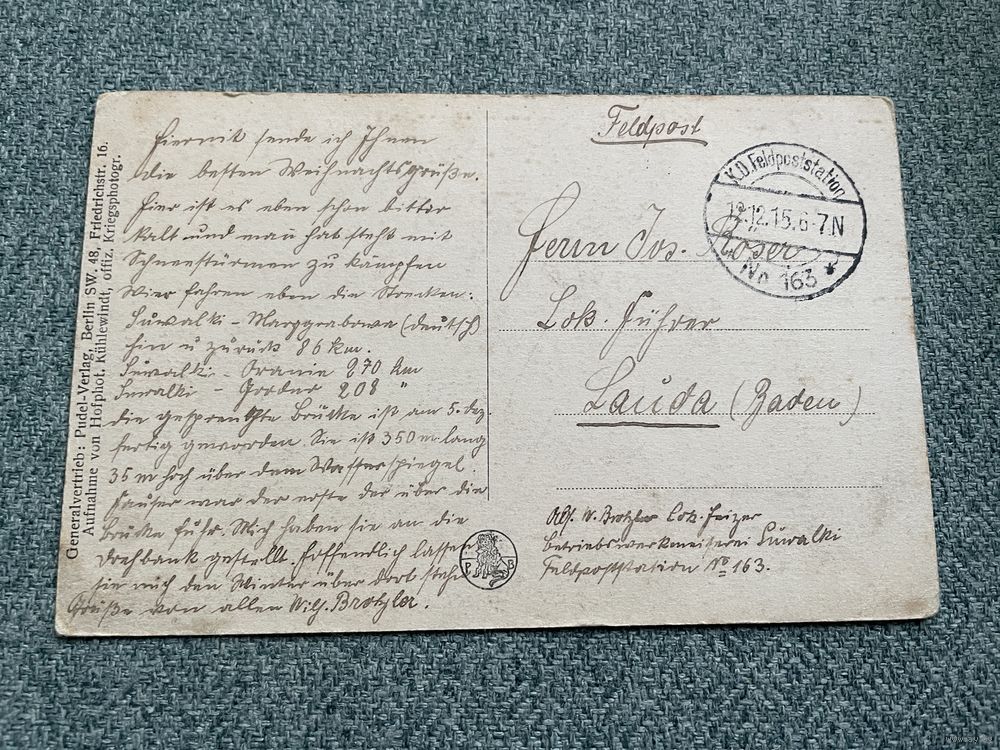 Generalvertrieb: Pudel-Verlag, Berlin SW. 48, Friedrichstr. 16.
Aufnahme von Hofphot. Kühlewindt, Offiz. Kriegsphotogr.
Hiermit sende ich Ihnen
die besten Weihnachtsgrüße.
Hier ist es eben schon bitter
kalt und man hat stehts mit
Schneestürmen zu kämpfen
Wier fahren eben die Strecken:
Suwalki – Marggrabowa (deutsch)
hin u zurück 86 km.
Suwalki – Oranie 270 km
Suwalki – Grodno 208 "
die gesprengte Brücke ist am 5. dez.
fertig geworden. Sie ist 350 m lang
35 m hoch über dem Wasserspiegel.
Hauser war der erste der über die
Brücke fuhr. Mich haben sie an die
Drehbank gestellt. Hoffendlich lassen
sie mich den Winter über dort stehn
Grüße von allen Wilh. Brotzler.
P B
Feldpost
K.D. Feldpoststation
12.12.15. 6-7N
No 163 *
Herrn Jos. Röser
Lok. Führer
Lauda (Baden)
Abs. W. Brotzler Lok. Heizer
Betriebswerkmeisterei Suwalki
Feldpoststation No 163.